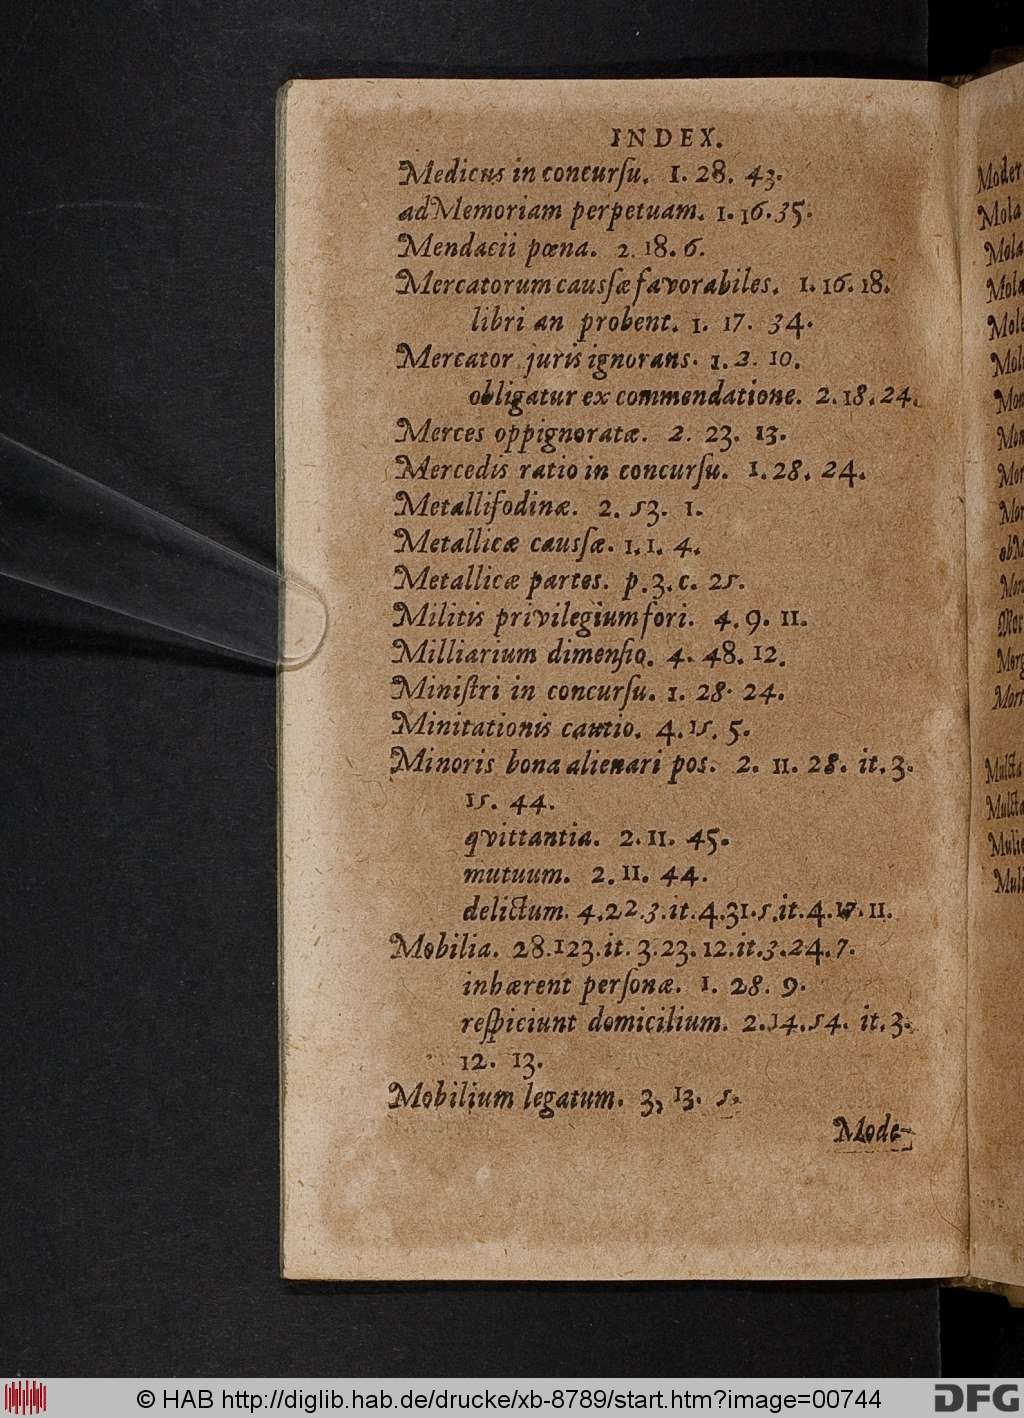 INDEX.
Medicus in concurſu. 1. 28. 43.
ad Memoriam perpetuam. 1. 16. 35.
Mendacii pœna. 2. 18. 6.
Mercatorum causſæ favorabiles. 1. 16. 18.
libri an probent. 1. 17. 34.
Mercator juris ignorans. 1. 2. 10.
obligatur ex commendatione. 2. 18. 24.
Merces oppignoratæ. 2. 23. 13.
Mercedis ratio in concurſu. 1. 28. 24.
Metallifodinæ. 2. 53. 1.
Metallicæ causſæ. 1. 1. 4.
Metallicæ partes. p. 3. c. 25.
Militis privilegium fori. 4. 9. 11.
Milliarium dimenſio. 4. 48. 12.
Miniſtri in concurſu. 1. 28. 24.
Minitationis cautio. 4. 15. 5.
Minoris bona alienari pos. 2. 11. 28. it. 3.
15. 44.
qvittantia. 2. 11. 45.
mutuum. 2. 11. 44.
delictum. 4. 22. 3. it. 4. 31. 5. it. 4. 17. 11.
Mobilia. 28. 123. it. 3. 23. 12. it. 3. 24. 7.
inhærent perſonæ. 1. 28. 9.
reſpiciunt domicilium. 2. 14. 54. it. 3.
12. 13.
Mobilium legatum. 3, 13. 5.
Mode-
Mola
© HAB http://diglib.hab.de/drucke/xb-8789/start.htm?image=00744
DFG